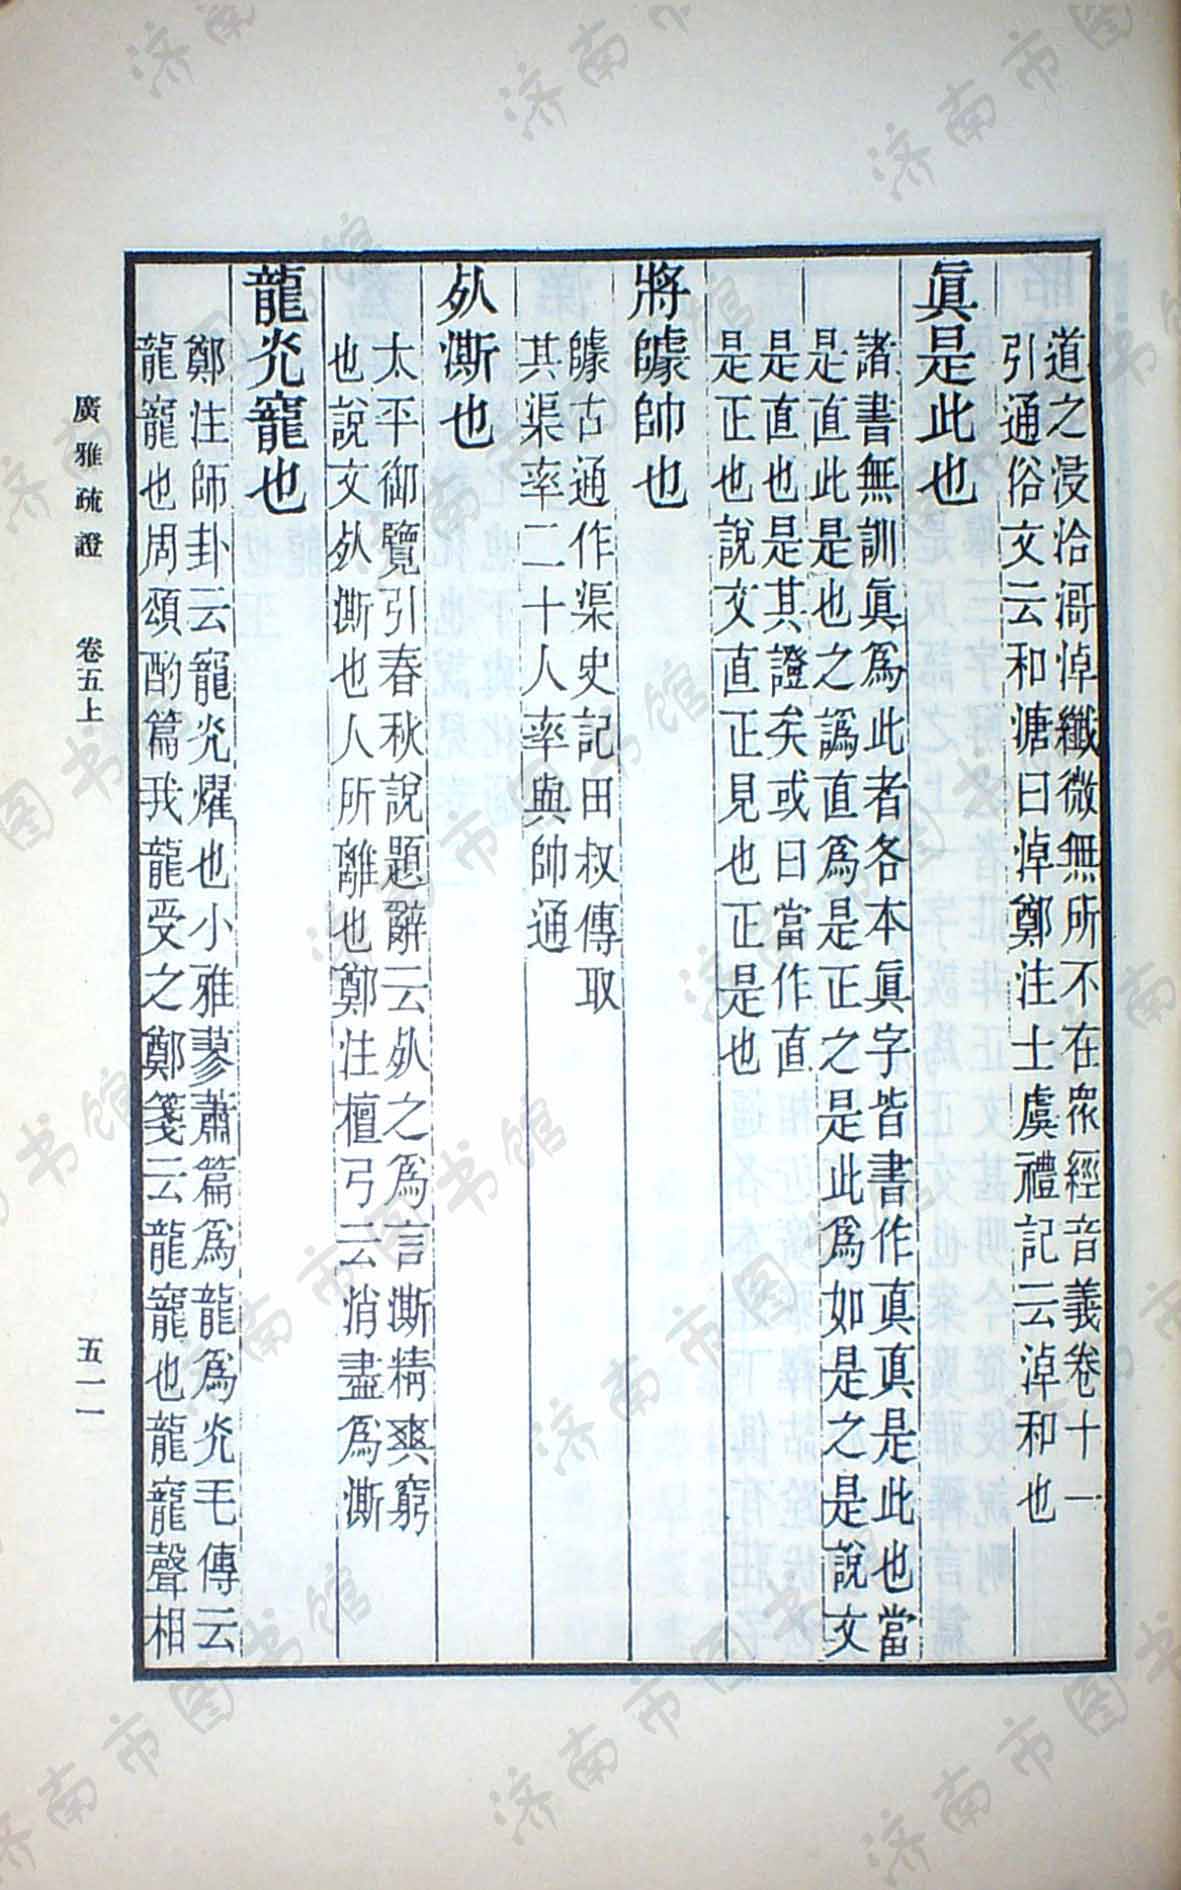 道之浸洽滒淖纖微無所不在衆經音義卷十一
引通俗文云和溏曰淖鄭注士虞禮記云淖和也
眞是此也
諸書無訓眞爲此者各本眞字皆書作真真是此也當
是直此是也之譌直爲是正之是此爲如是之是說文
是直也是其證矣或曰當作直
是正也說文直正見也正是也
將㯫帥也
㯫古通作渠史記田叔傳取
其渠率二十人率與帥通
𣦸澌也
太平御覽引春秋說題辭云𣦸之爲言澌精爽窮
也說文𣦸澌也人所離也鄭注檀弓云消盡爲澌
龍灮寵也
鄭注師卦云寵灮燿也小雅蓼蕭篇爲龍爲灮毛傳云
龍寵也周頌酌篇我龍受之鄭箋云龍寵也龍寵聲相
廣雅疏證 卷五上 五一一
济南市图书馆